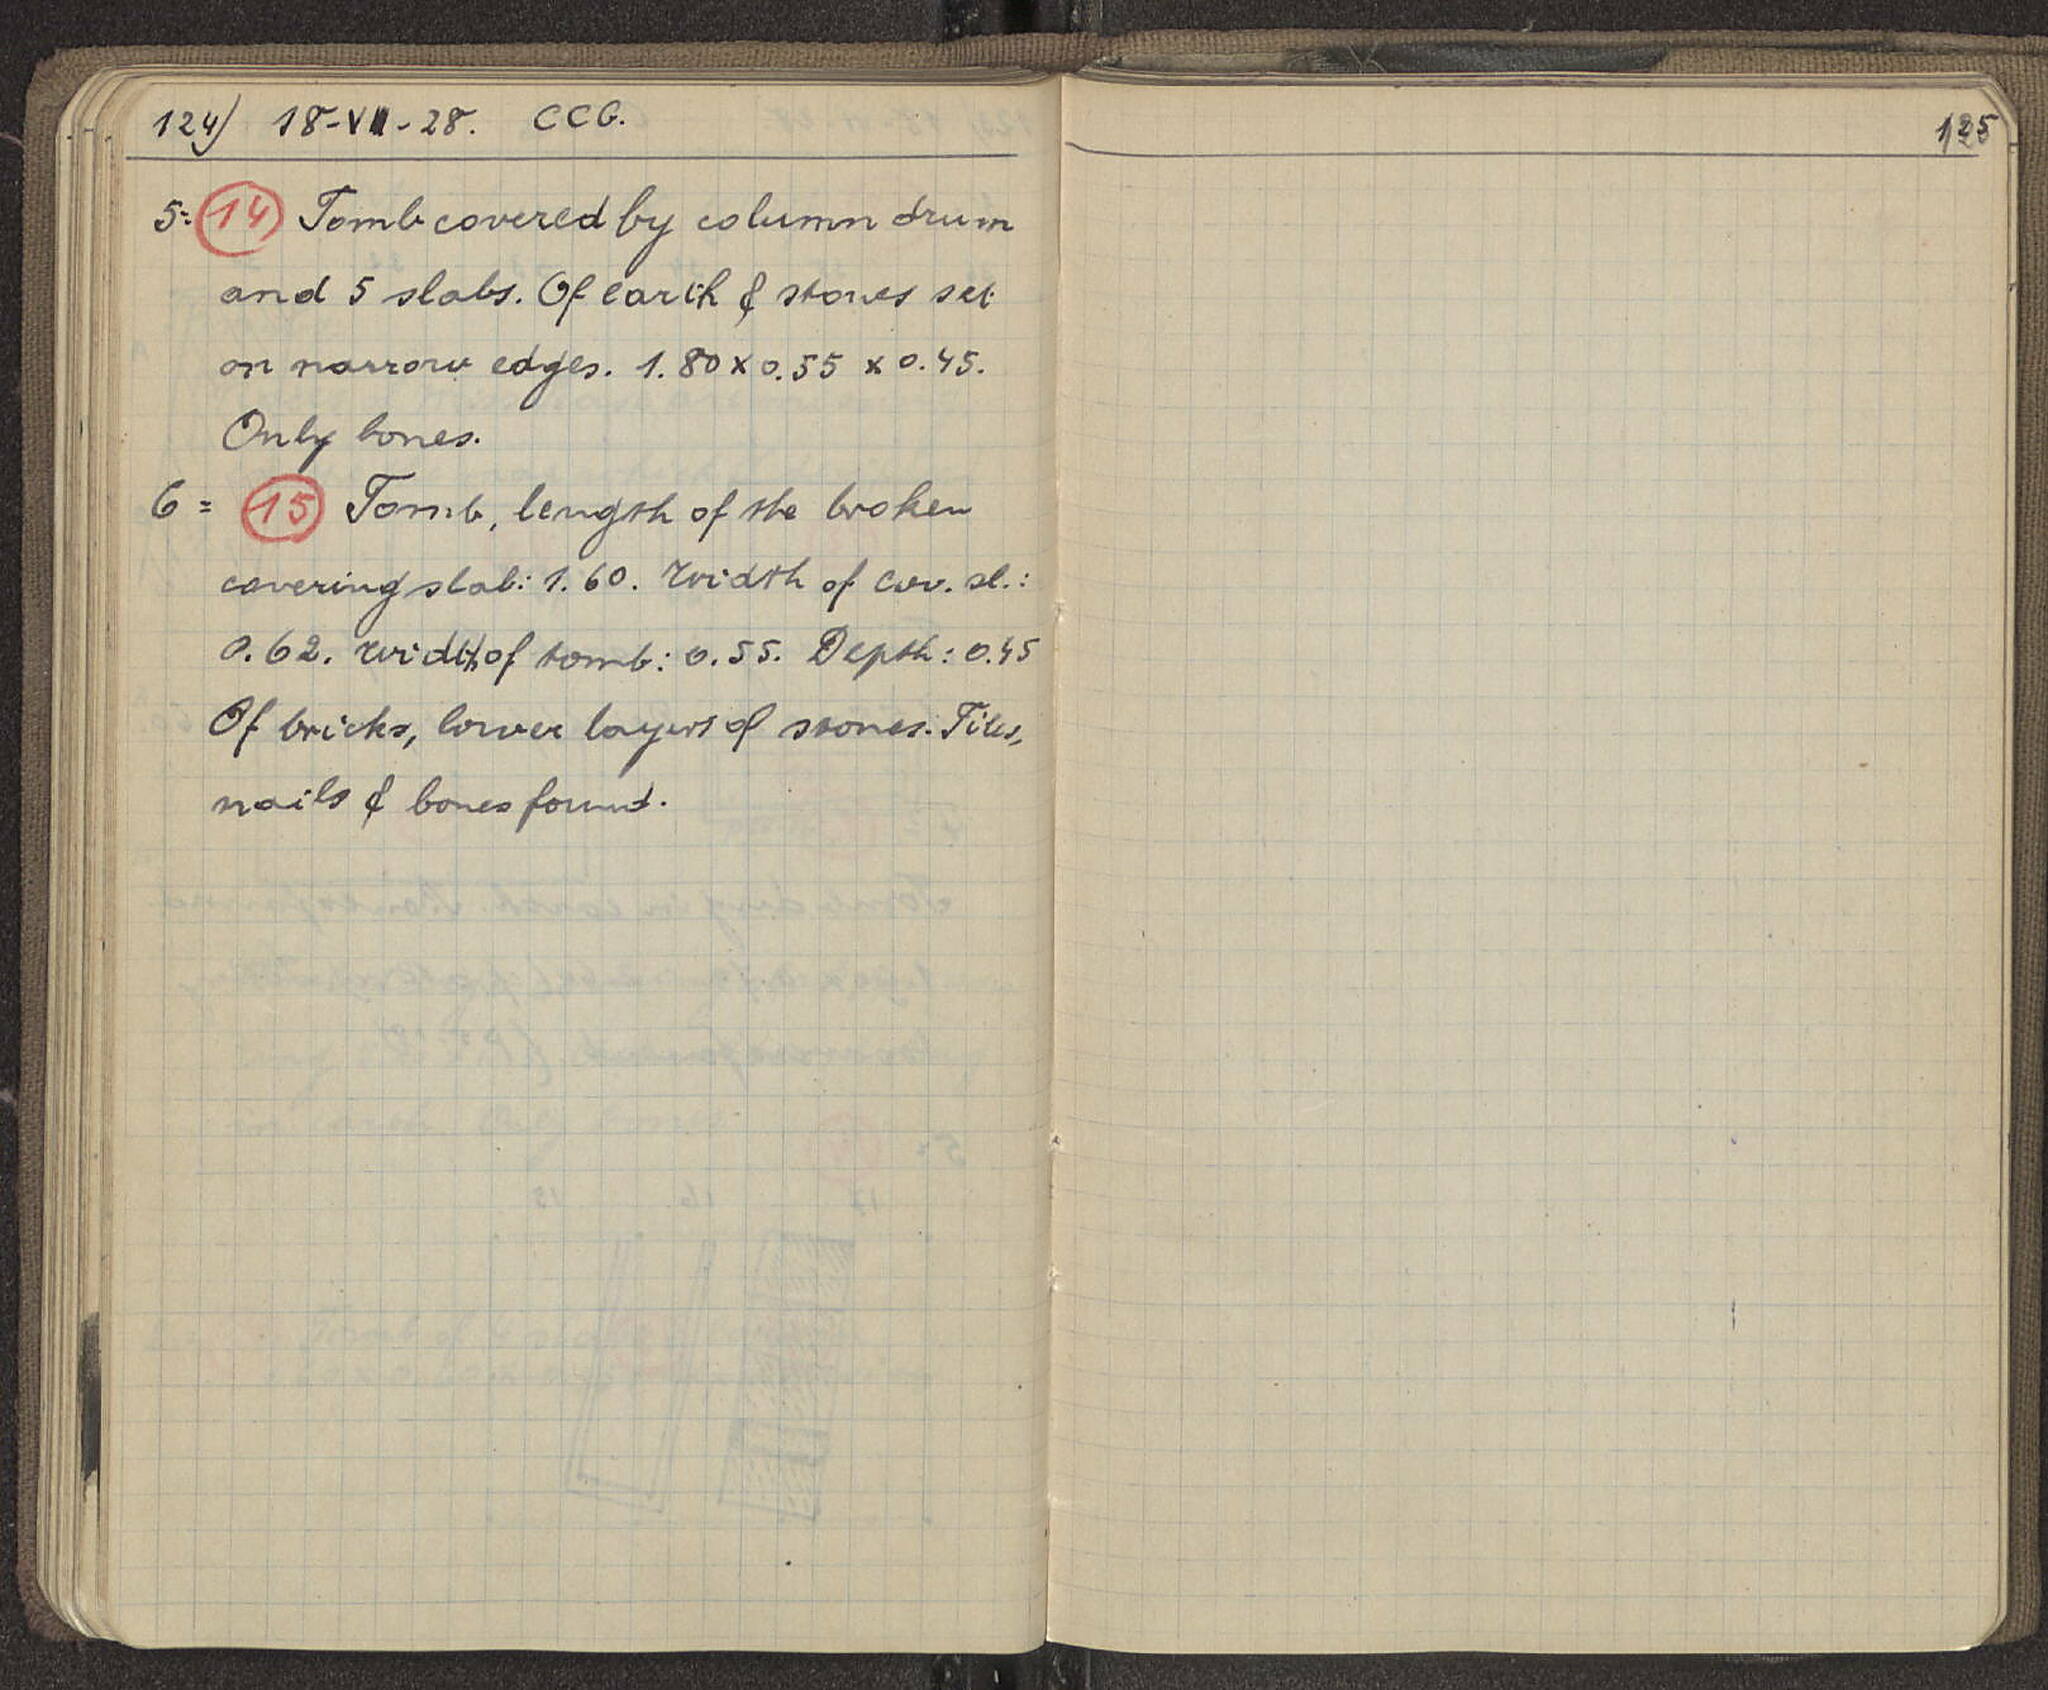 124) 18-VII-28. CCG.
5= 14 Tomb covered by column drum
and 5 slabs. Of earth & stones set
on narrow edges. 1.80 x 0.55 x 0.45.
Only bones.
6 = 15 Tomb, length of the broken
covering slab: 1.60. Width of cov. sl.:
0.62. Width of tomb: 0.55. Depth: 0.45
Of bricks, lower layers of stones. Tiles,
nails & bones found.
125